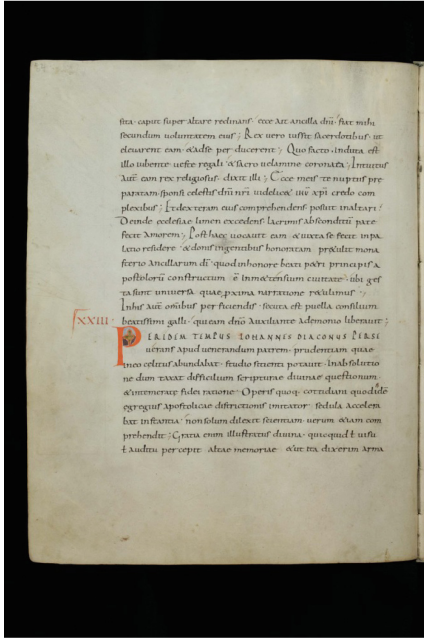 sita · caput super altare reclinans · ecce ait ancilla dñi · fiat mihi
secundum voluntatem eius ; Rex vero iussit sacerdotibus · ut
elevarent eam · & ad se per ducerent ; Quo facto · Induta est
illo iubente veste regali · & sacro velamine coronata ; Intuitus
aut eam rex religiosus · dixit illi ; Ecce meis te nuptiis pre
paratam · sponsi celestis dñi nri videlic& ihu xpi credo com
plexibus ; Et dexteram eius comprehendens posuit in altari ·
Deinde ecclesiae limen excedens · lacrimis absconditum pate
fecit amorem ; Post haec vocavit eam · & iuxta se fecit in pa
latio residere · & donis ingentibus honoratam · praetulit mona
sterio ancillarum di · quod in honore beati p&ri principis a
postolorum constructum ÷ in m&tensium civitate · ubi ges
ta sunt universa quae pxima narratione retulimus ·
In his aut omibus per ficiendis · secuta est puella consilium
beatissimi galli · qui eam dno auxiliante a demonio liberavit ;
XXIII · PER IDEM TEMPUS IOHANNES DIACONUS PERSE
verans apud venerandum patrem · prudentiam quae
in eo celitus abundabat · studio sitienti potavit · In absolutio
ne dum taxat difficilium scripturae divinae questionum
& intemerate fidei ratione · Operis quoq · cottidiani quod ille
egregius apostolicae districtionis imitator sedula accelera
bat instantia · non solum dilexit scientiam · verum etiam com
prehendit ; Gratia enim illustratus divina · quicquid ł visu
ł auditu percepit altae memoriae · & ut ita dixerim arma